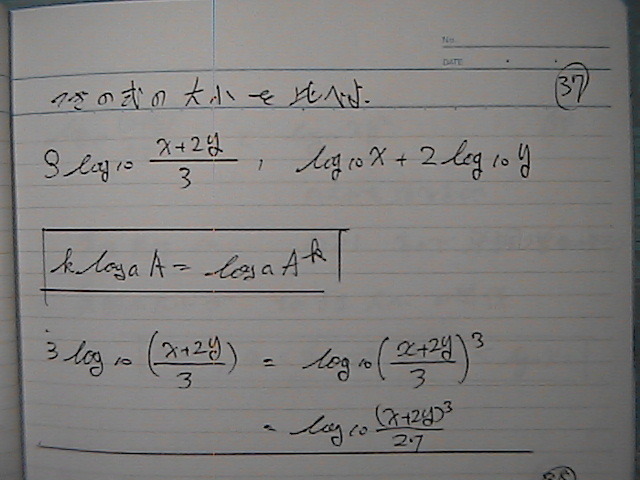 No.
DATE
次の式の大小を比べよ.
37
3 log₁₀ (x+2y)/3 , log₁₀x + 2 log₁₀y
k logₐ A = logₐ Aᵏ
3 log₁₀ ((x+2y)/3) = log₁₀ ((x+2y)/3)³
= log₁₀ (x+2y)³/27